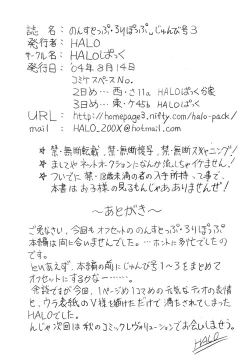 誌名：のんすとっぷ・ろりぽっぷ じゅんび号3
発行者：HALO
サークル名：HALOぱっく
発行日：'04年8月14日
コミケスペースNo.
2日め… 西・さ11a HALOぱっく分室
3日め… 東・ケ45b HALOぱっく
URL：http://homepage3.nifty.com/halo-pack/
mail：HALO_200X@hotmail.com
* 禁・無断転載、禁・無断複写、禁・無断スキャニング!
* ましてやネットオークションになんか流しちゃイケません!
* ついでに禁・18歳未満の者の入手所持って事で、
本書はお子様の見るもんじゃあありませんぜ!
～あとがき～
ご免なさい、今回もオフセットののんすとっぷろりぽっぷ
本編は間に合いませんでした。…ホントに列伝でしたの
です。
とりあえず、本編の前にじゅんび号1～3をまとめて
オフセットにするかな…
余談ですが今回、1ページめ1コマめの元気なティオの表情
と、ウラ表紙のV様を描けただけで満たされてしまった
HALOでした。
んじゃ次回は秋のコミックレヴォリューションでお会いしませう。
HALO